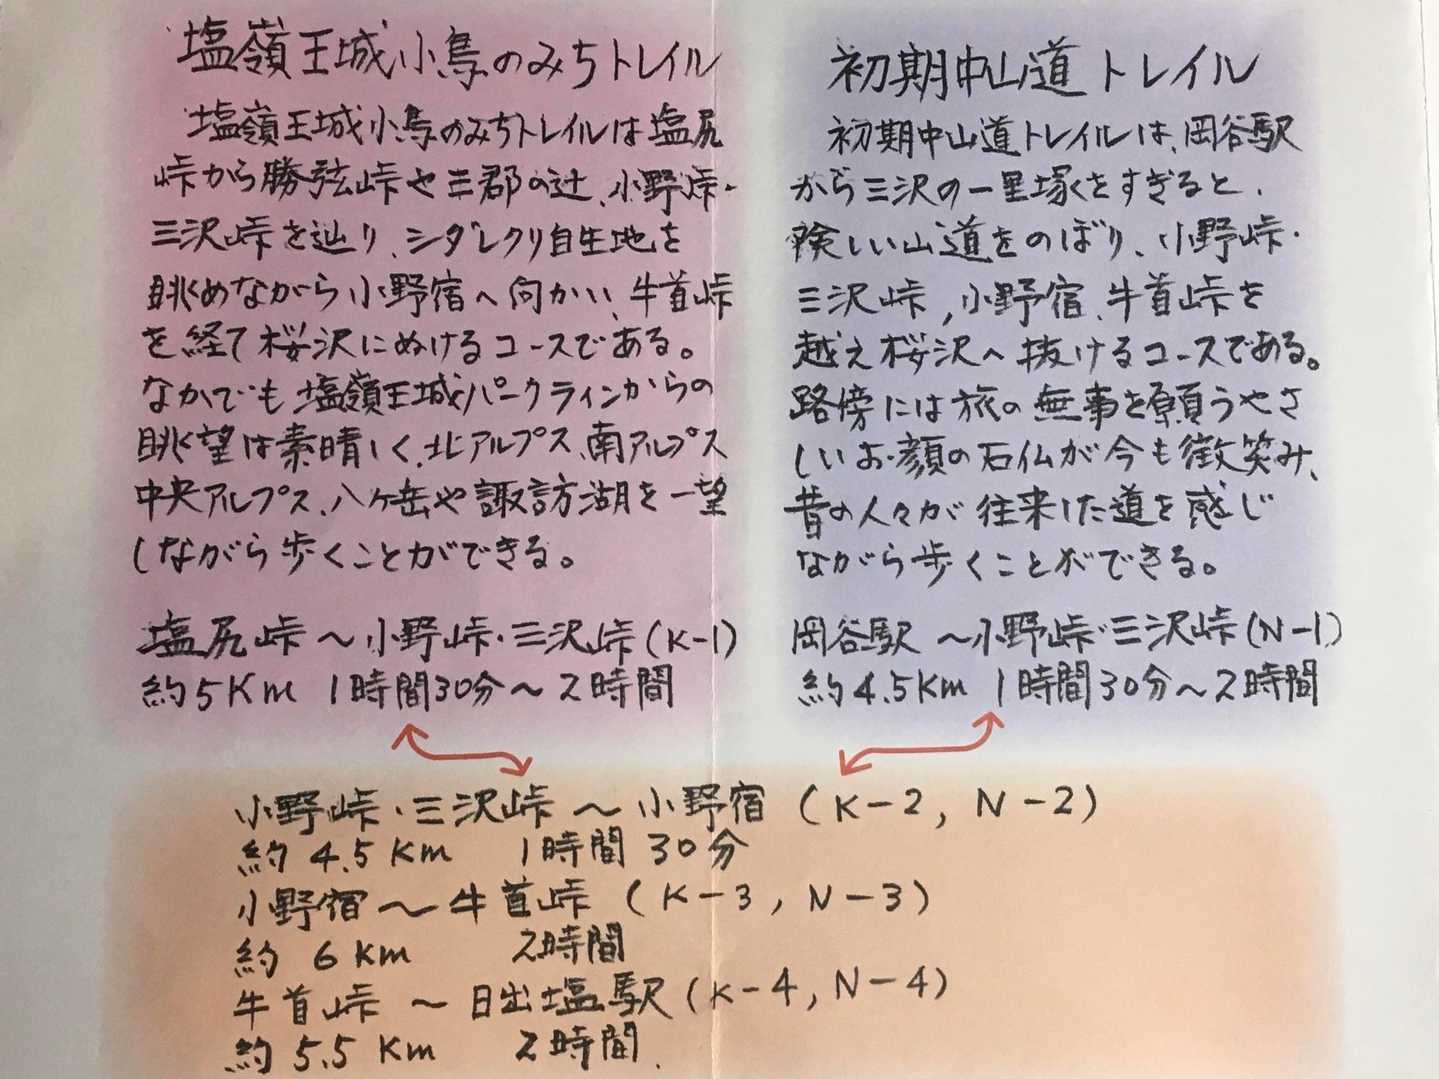 塩嶺王城小鳥のみちトレイル
塩嶺王城小鳥のみちトレイルは塩尻
峠から勝弦峠や三郡の辻、小野峠・
三沢峠を辿り、シダレクリ自生地を
眺めながら小野宿へ向かい、牛首峠
を経て桜沢にぬけるコースである。
なかでも塩嶺王城パークラインからの
眺望は素晴しく、北アルプス、南アルプス
中央アルプス、八ヶ岳や諏訪湖を一望
しながら歩くことができる。
塩尻峠～小野峠・三沢峠(K-1)
約5Km 1時間30分～2時間
初期中山道トレイル
初期中山道トレイルは、岡谷駅
から三沢の一里塚をすぎると、
険しい山道をのぼり、小野峠・
三沢峠,小野宿、牛首峠を
越え桜沢へ抜けるコースである。
路傍には旅の無事を願うやさ
しいお顔の石仏が今も微笑み、
昔の人々が往来した道を感じ
ながら歩くことができる。
岡谷駅～小野峠・三沢峠(N-1)
約4.5Km 1時間30分～2時間
小野峠・三沢峠～小野宿(K-2, N-2)
約4.5Km 1時間30分
小野宿～牛首峠(K-3, N-3)
約6Km 2時間
牛首峠～日出塩駅(K-4, N-4)
約5.5Km 2時間.